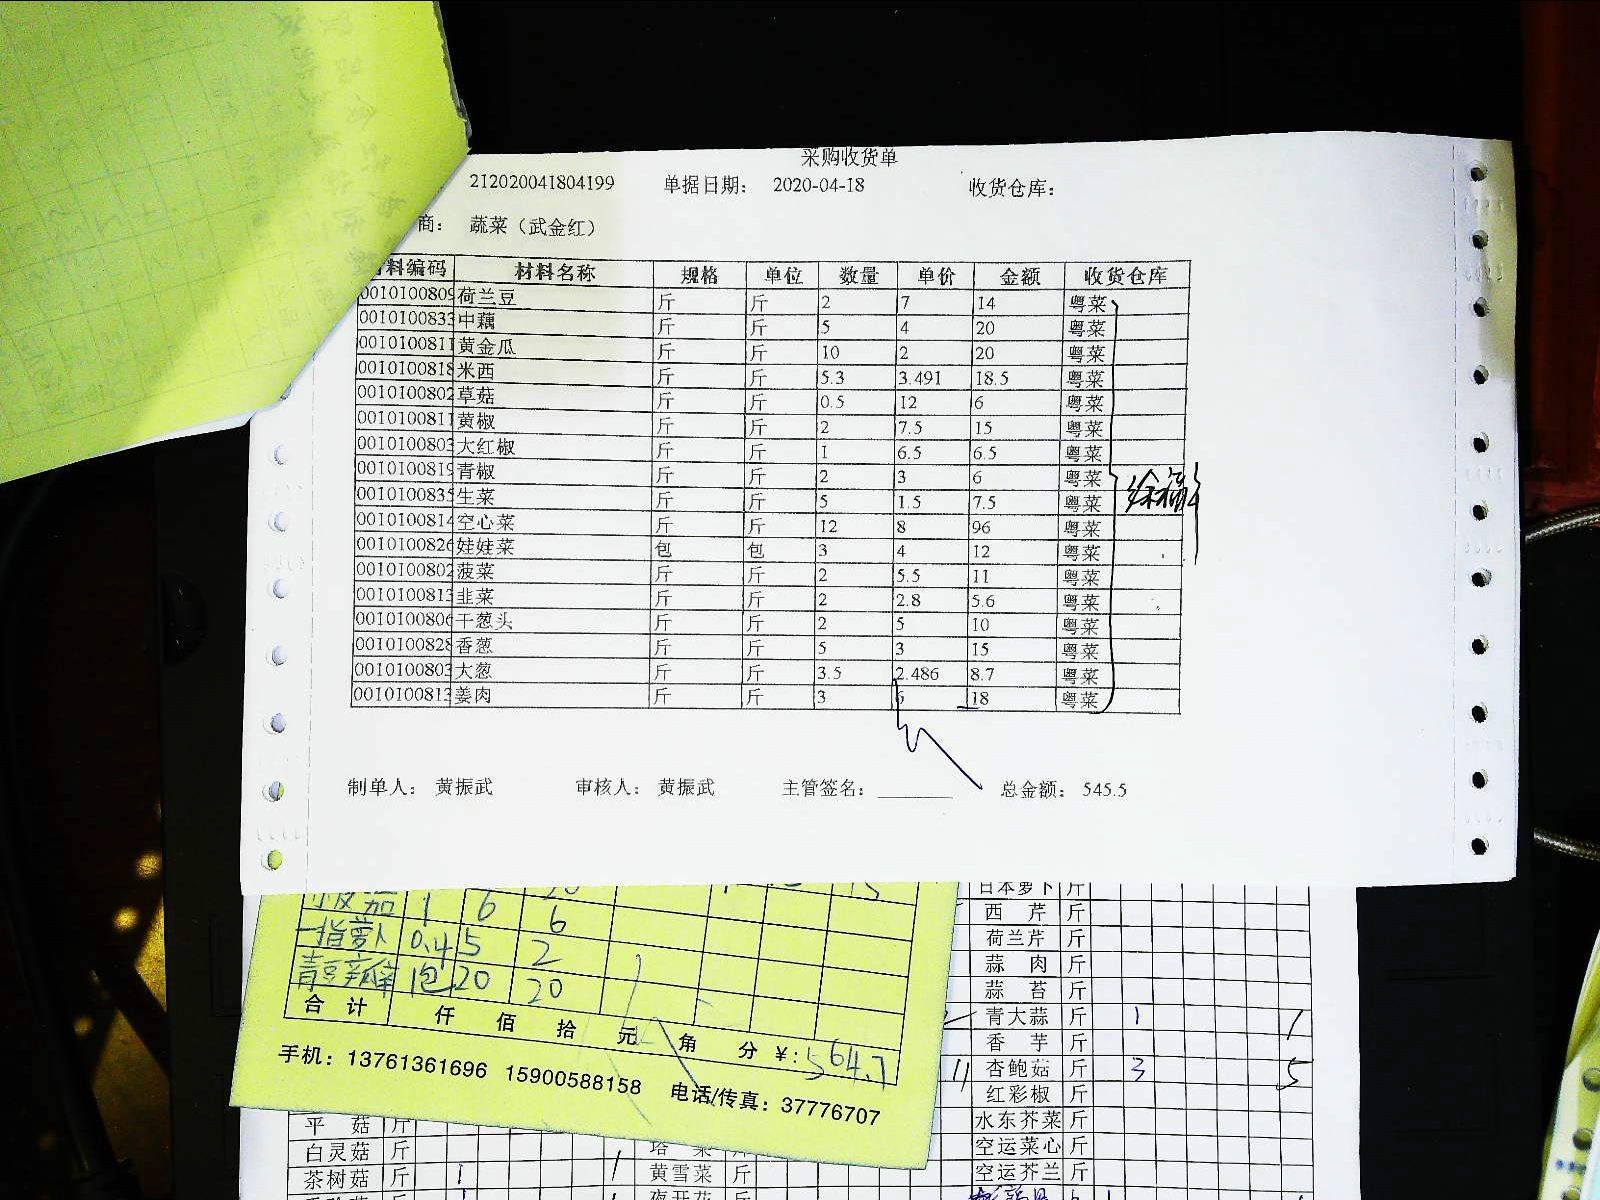 采购收货单
212020041804199 单据日期： 2020-04-18 收货仓库：
商： 蔬菜（武金红）
料编码 材料名称 规格 单位 数量 单价 金额 收货仓库
0010100809 荷兰豆 斤 斤 2 7 14 粤菜
0010100833 中藕 斤 斤 5 4 20 粤菜
001010081 黄金瓜 斤 斤 10 2 20 粤菜
0010100818 米西 斤 斤 5.3 3.491 18.5 粤菜
0010100802 草菇 斤 斤 0.5 12 6 粤菜
001010081 黄椒 斤 斤 2 7.5 15 粤菜
0010100803 大红椒 斤 斤 1 6.5 6.5 粤菜
0010100819 青椒 斤 斤 2 3 6 粤菜
0010100835 生菜 斤 斤 5 1.5 7.5 粤菜
0010100814 空心菜 斤 斤 12 8 96 粤菜
0010100826 娃娃菜 包 包 3 4 12 粤菜
0010100802 菠菜 斤 斤 2 5.5 11 粤菜
0010100813 韭菜 斤 斤 2 2.8 5.6 粤菜
0010100806 干葱头 斤 斤 2 5 10 粤菜
0010100828 香葱 斤 斤 5 3 15 粤菜
0010100803 大葱 斤 斤 3.5 2.486 8.7 粤菜
0010100813 姜肉 斤 斤 3 6 18 粤菜
制单人： 黄振武 审核人： 黄振武 主管签名： 总金额： 545.5
1 6 6
一指萝卜 0.4 5 2
青豆瓣 1包 20 20
合计 仟 佰 拾 元 角 分 ￥：564.7
手机：13761361696 15900588158 电话/传真：37776707
日本萝卜 斤
西芹 斤
荷兰芹 斤
蒜肉 斤
蒜苔 斤
青大蒜 斤 1 1
香芋 斤
杏鲍菇 斤 3 5
红彩椒 斤
水东芥菜 斤
空运菜心 斤
空运芥兰 斤
平菇 斤
白灵菇 斤
茶树菇 斤 1 1
塔菜 斤
黄雪菜 斤